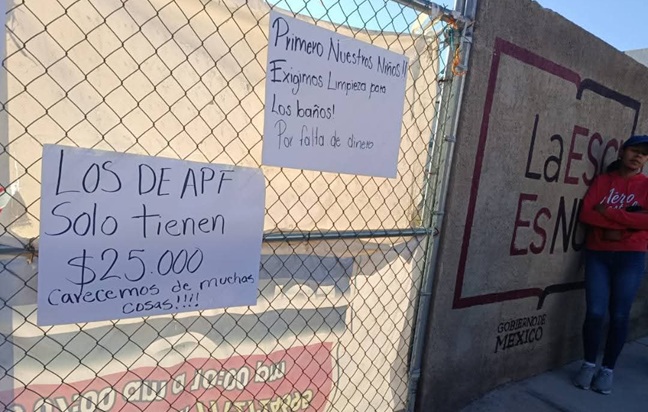 Primero Nuestros Niños!!
Exigimos Limpieza para
Los baños!
Por falta de dinero
LOS DE APF
Solo tienen
$25.000
carecemos de muchas
cosas!!!!
La ESC
Es NU
GOBIERNO DE
MÉXICO
am a 10:00 pm